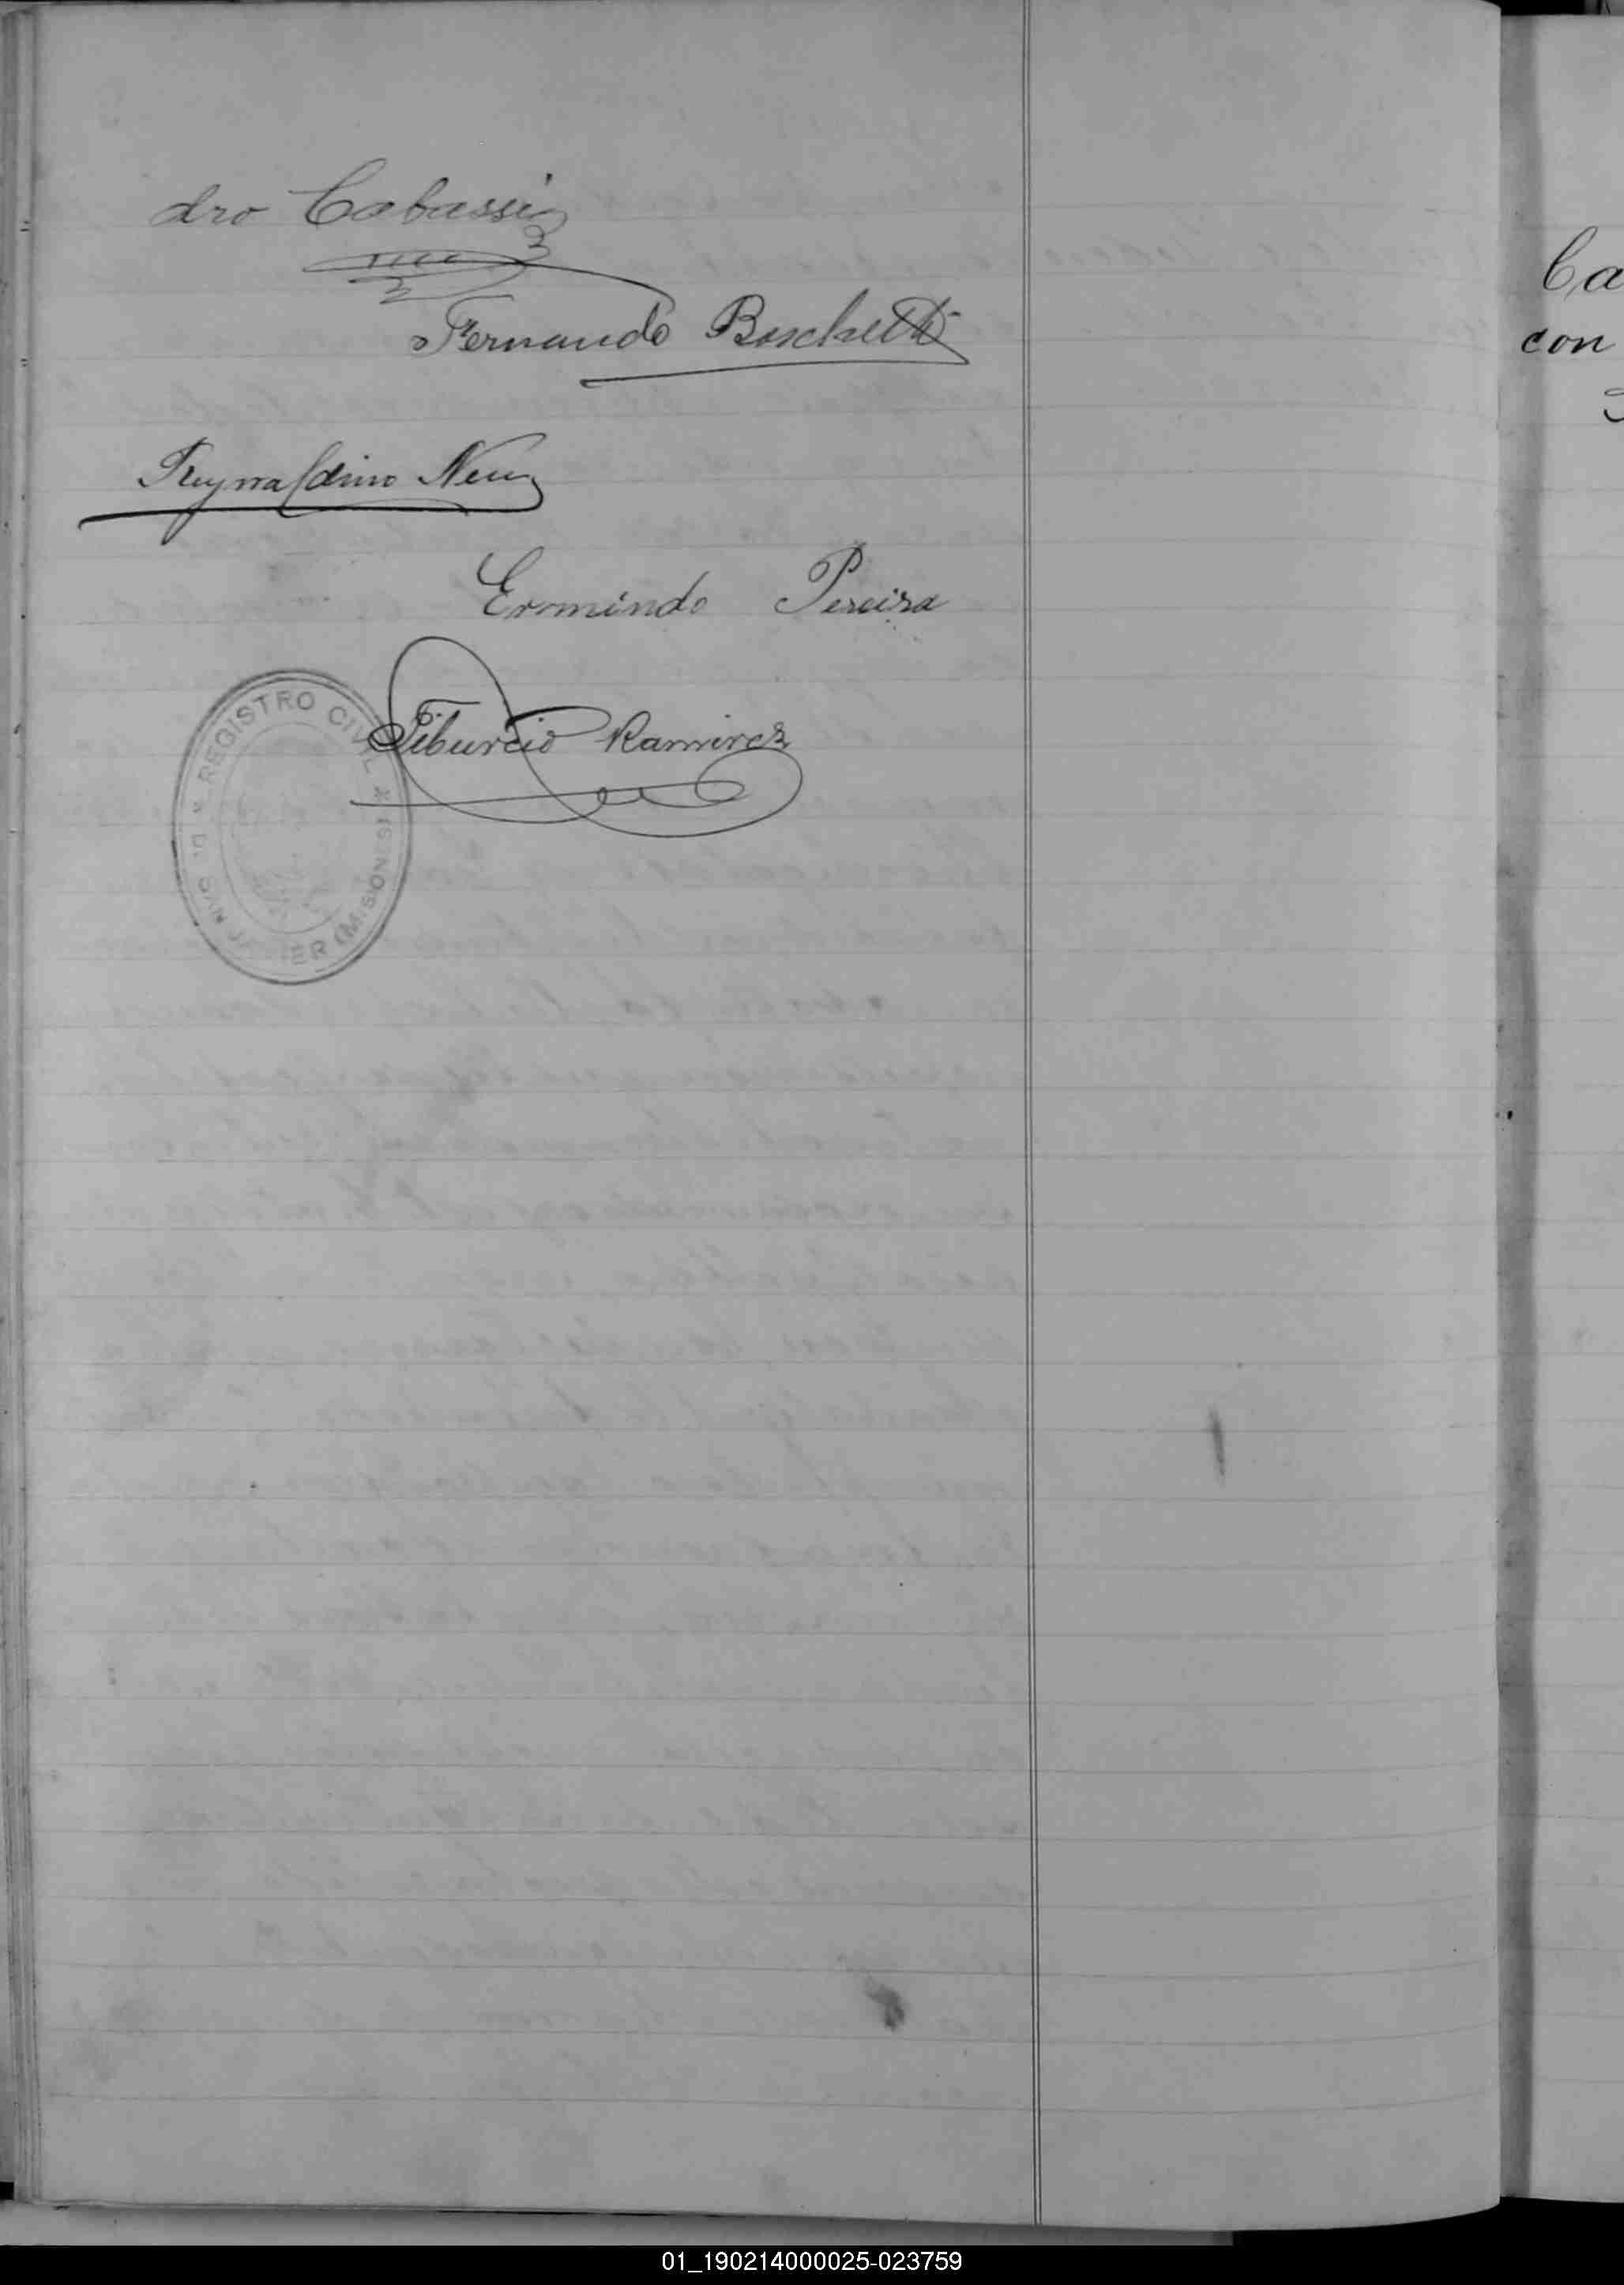 dro Cabassi
Fernando Boschetti
Reynaldino Neu
Ermindo Pereira
Tiburcio Ramirez
REGISTRO CIVIL * DE SAN JAVIER (MISIONES) *
Ca
con
01_190214000025-023759